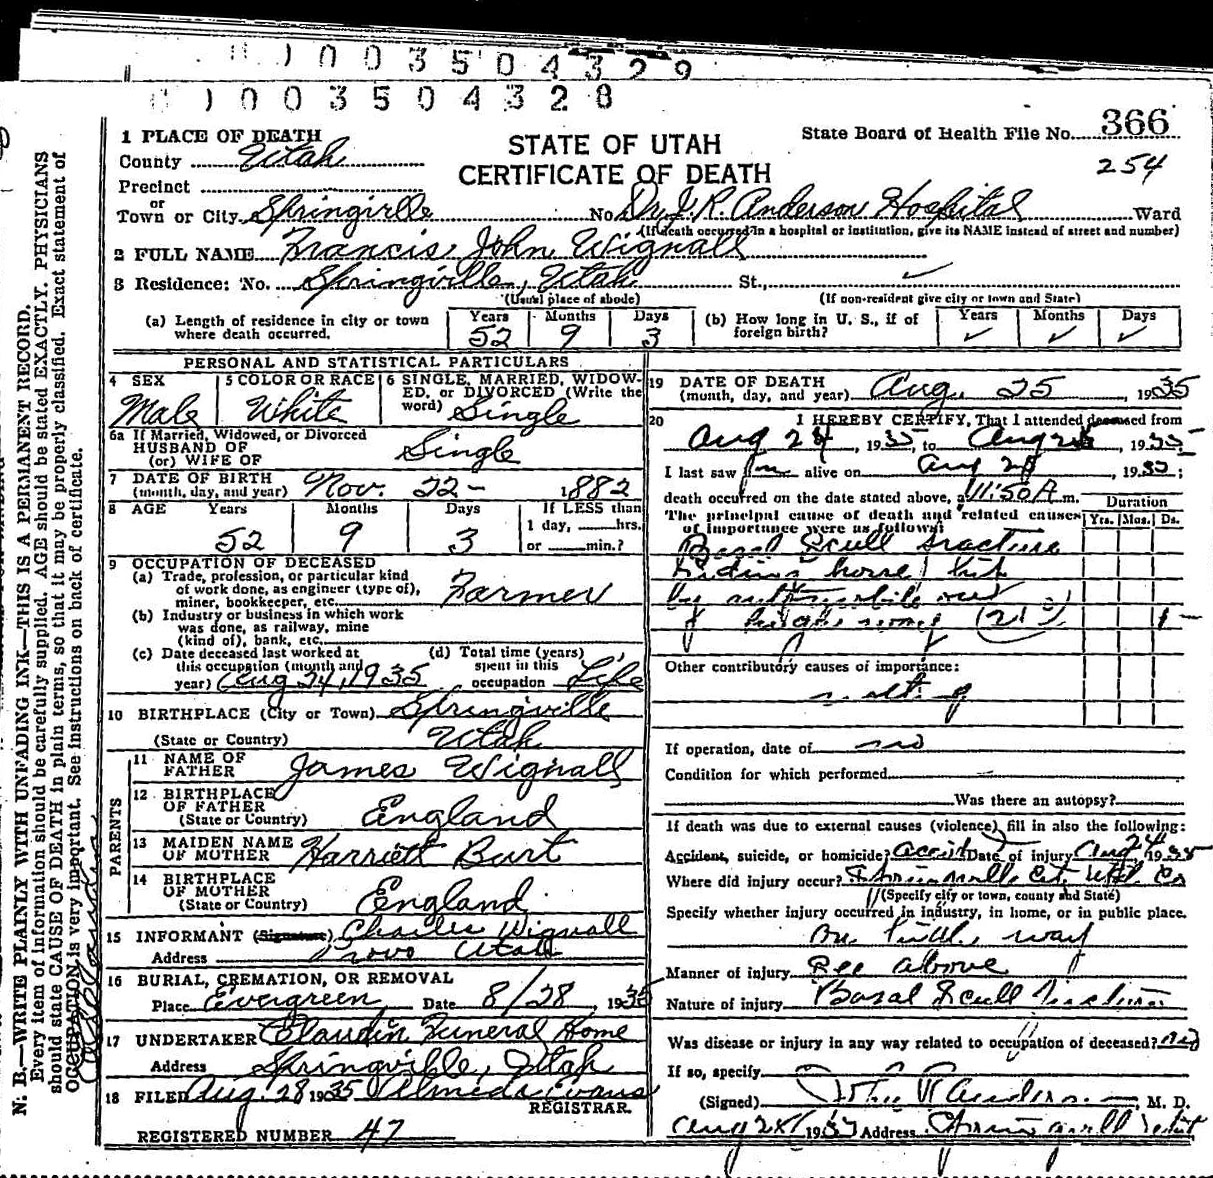 0 0 3 5 0 4 3 2 9
0 0 3 5 0 4 3 2 8
N. B.—WRITE PLAINLY WITH UNFADING INK—THIS IS A PERMANENT RECORD.
Every item of information should be carefully supplied. AGE should be stated EXACTLY. PHYSICIANS
should state CAUSE OF DEATH in plain terms, so that it may be properly classified. Exact statement of
OCCUPATION is very important. See instructions on back of certificate.
STATE OF UTAH
CERTIFICATE OF DEATH
State Board of Health File No. 366
254
1 PLACE OF DEATH
County Utah
Precinct
or
Town or City Springville No. Dr. J. R. Anderson Hospital Ward
(If death occurred in a hospital or institution, give its NAME instead of street and number)
2 FULL NAME Francis John Wignall
3 Residence: No. Springville, Utah St.,
(Usual place of abode) (If non-resident give city or town and State)
(a) Length of residence in city or town where death occurred. Years 52 Months 9 Days 3
(b) How long in U. S., if of foreign birth? Years ✓ Months ✓ Days ✓
PERSONAL AND STATISTICAL PARTICULARS
4 SEX Male
5 COLOR OR RACE White
6 SINGLE, MARRIED, WIDOWED, OR DIVORCED (Write the word) Single
6a If Married, Widowed, or Divorced
HUSBAND OF
(or) WIFE OF Single
7 DATE OF BIRTH
(month, day, and year) Nov. 22- 1882
8 AGE Years 52 Months 9 Days 3
If LESS than
1 day, hrs.
or min.?
9 OCCUPATION OF DECEASED
(a) Trade, profession, or particular kind
of work done, as engineer (type of),
miner, bookkeeper, etc. Farmer
(b) Industry or business in which work
was done, as railway, mine
(kind of), bank, etc.
(c) Date deceased last worked at
this occupation (month and
year) Aug 24, 1935
(d) Total time (years)
spent in this
occupation Life
10 BIRTHPLACE (City or Town) Springville
(State or Country) Utah
PARENTS
11 NAME OF FATHER James Wignall
12 BIRTHPLACE OF FATHER
(State or Country) England
13 MAIDEN NAME OF MOTHER Harriett Burt
14 BIRTHPLACE OF MOTHER
(State or Country) England
15 INFORMANT (Signature) Charles Wignall
Address Provo Utah
16 BURIAL, CREMATION, OR REMOVAL
Place Evergreen Date 8/28, 1935
17 UNDERTAKER Claudin Funeral Home
Address Springville, Utah
18 FILED Aug. 28 1935 Almeda Evans
REGISTRAR.
REGISTERED NUMBER 47
19 DATE OF DEATH
(month, day, and year) Aug. 25, 1935
20 I HEREBY CERTIFY, That I attended deceased from
Aug 24, 1935, to Aug 25, 1935
I last saw him alive on Aug 25, 1935;
death occurred on the date stated above, at 11:50 A m.
The principal cause of death and related causes
of importance were as follows:
Duration
Yrs. Mos. Ds.
Basal Scull fracture
Riding horse hit
by automobile
1
Other contributory causes of importance:
If operation, date of no
Condition for which performed
Was there an autopsy?
If death was due to external causes (violence) fill in also the following:
Accident, suicide, or homicide? Accid Date of injury Aug 24 1935
Where did injury occur?
(Specify city or town, county and State)
Specify whether injury occurred in industry, in home, or in public place.
way
Manner of injury See above
Nature of injury Basal Scull fracture
Was disease or injury in any way related to occupation of deceased? no
If so, specify
(Signed) Anderson, M. D.
Aug 28 Address Springville Utah